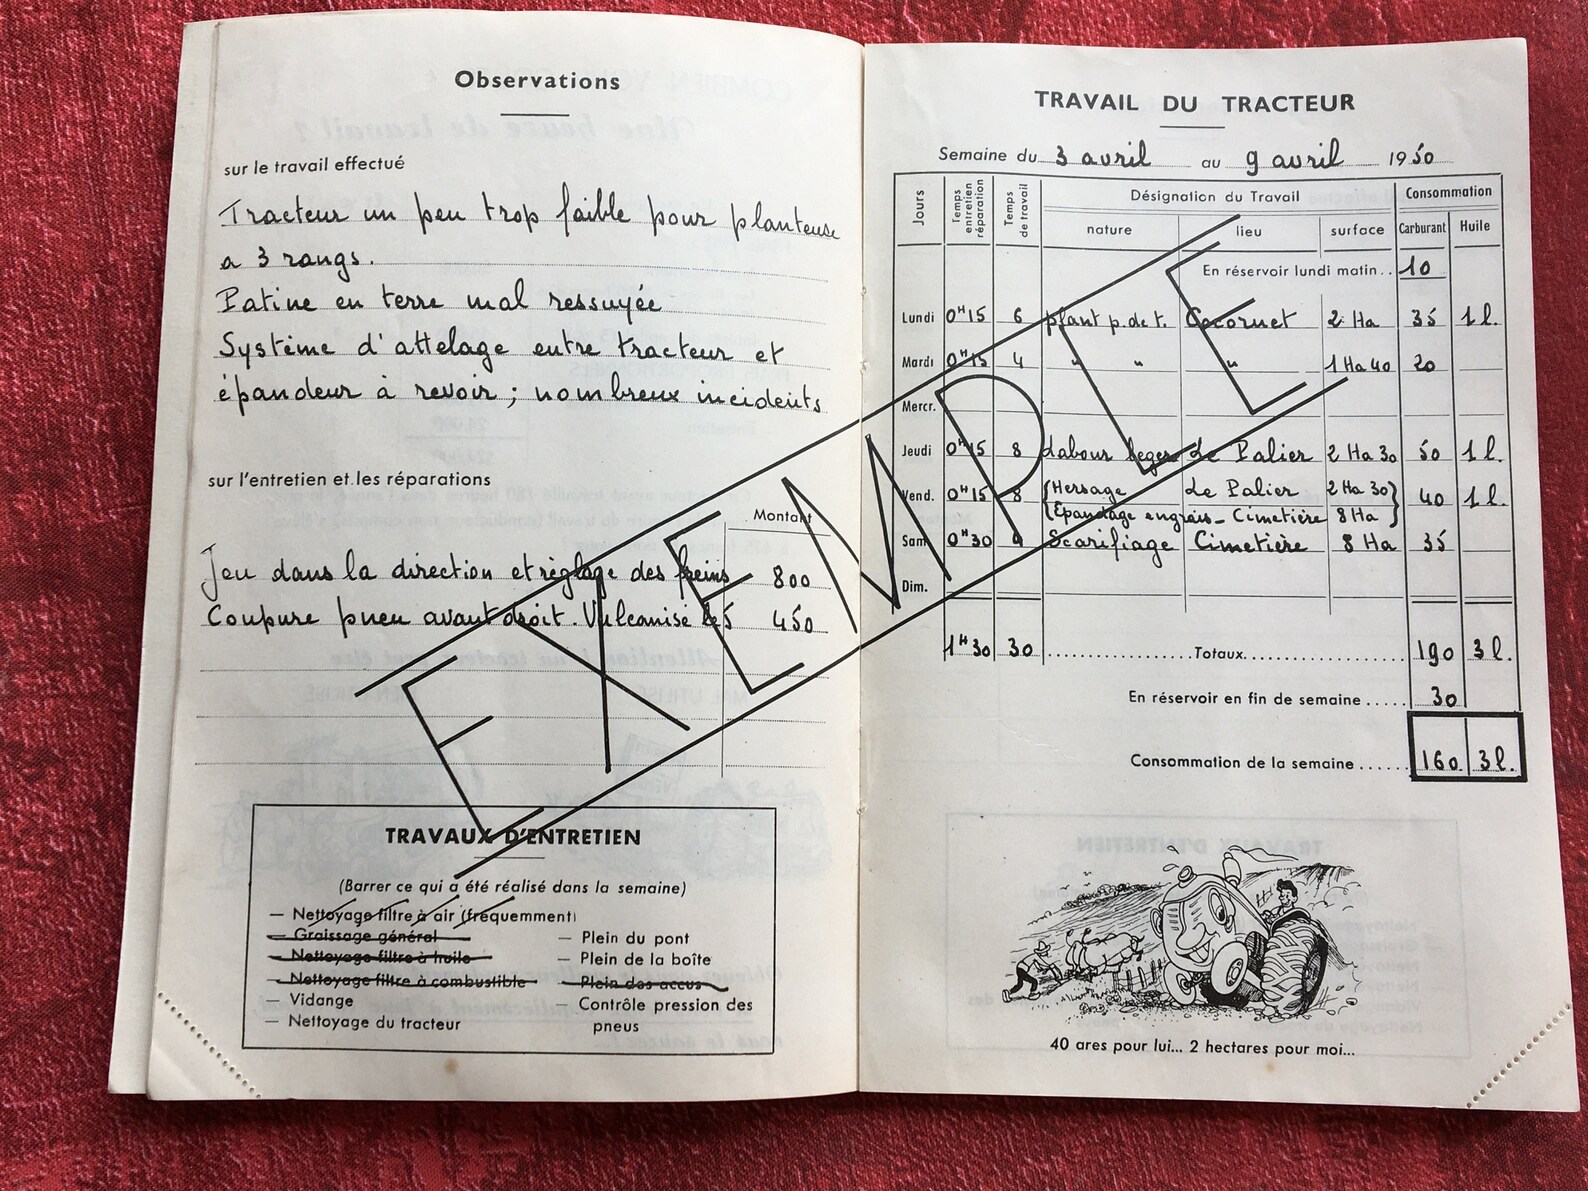 Observations
sur le travail effectué
Tracteur un peu trop faible pour planteuse
a 3 rangs.
Patine en terre mal ressuyée
Système d'attelage entre tracteur et
épandeur à revoir ; nombreux incidents
sur l'entretien et les réparations
Montant
Jeu dans la direction et réglage des freins 800
Coupure pneu avant droit. Vulcanisé le 5 450
EXEMPLE
TRAVAUX D'ENTRETIEN
(Barrer ce qui a été réalisé dans la semaine)
— Nettoyage filtre à air (fréquemment)
— Graissage général — Plein du pont
— Nettoyage filtre à huile — Plein de la boîte
— Nettoyage filtre à combustible — Plein des accus
— Vidange — Contrôle pression des
— Nettoyage du tracteur pneus
TRAVAIL DU TRACTEUR
Semaine du 3 avril au 9 avril 1950
Jours Temps entretien réparation Temps de travail Désignation du Travail Consommation
nature lieu surface Carburant Huile
En réservoir lundi matin.. 10
Lundi 0H15 6 plant p. de t. Cocornet 2 Ha 35 1 l.
Mardi 0H15 4 " " " 1 Ha 40 20
Mercr.
Jeudi 0H15 8 Labour leger Le Palier 2 Ha 30 50 1 l.
Vend. 0H15 8 { Hersage Le Palier 2 Ha 30 } 40 1 l.
{ Epandage engrais - Cimetière 8 Ha }
Sam. 0H30 4 Scarifiage Cimetière 8 Ha 35
Dim.
1H30 30 ..........Totaux.......... 190 3 l.
En réservoir en fin de semaine ..... 30
Consommation de la semaine ...... 160 3 l.
40 ares pour lui... 2 hectares pour moi...